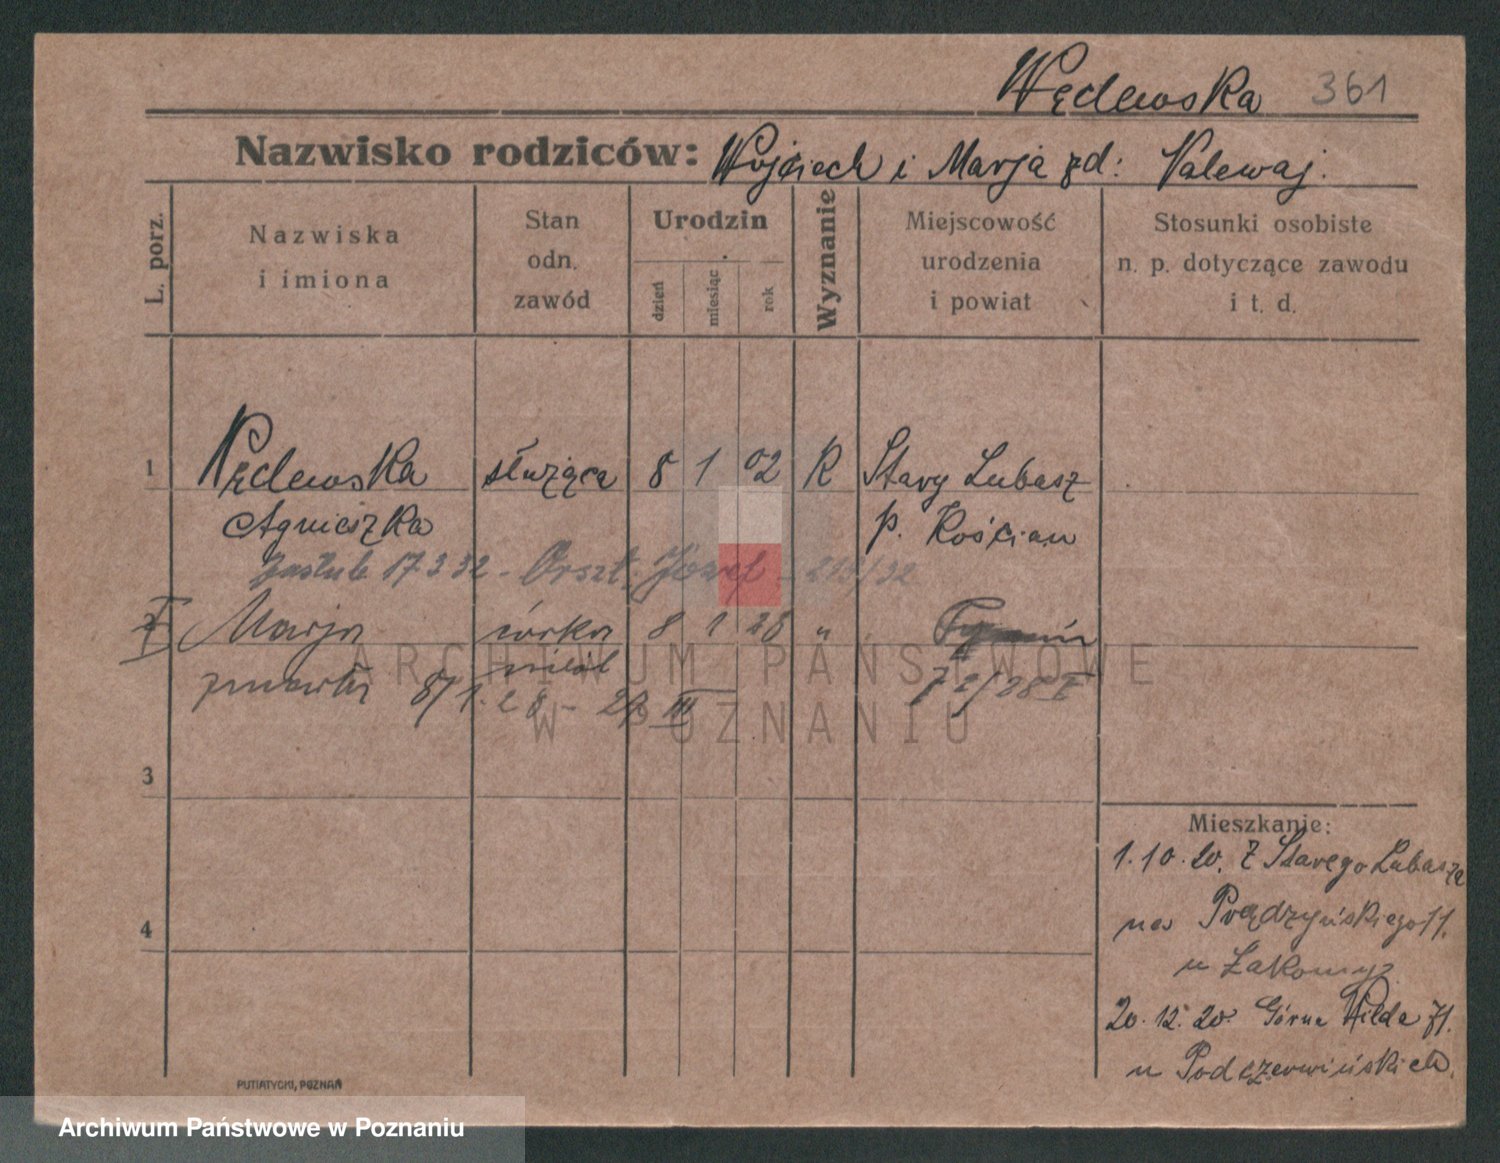 Wędewska 361
Nazwisko rodziców: Wojciech i Marja zd: Nalewaj.
L. porz.
Nazwiska
i imiona
Stan
odn.
zawód
Urodzin
dzień
miesiąc
rok
Wyznanie
Miejscowość
urodzenia
i powiat
Stosunki osobiste
n. p. dotyczące zawodu
i t. d.
1 Wędewska służąca 8 1 02 R Stary Lubasz
Agnieszka p. Kościan
Zaślub 17 3 32 - Orszt. Józef - /32
2 Marja córka 8 1 28 "
nieśl
zmarła 8/1.28 - III 72/28
3
4
Mieszkanie:
1.10.20. Z Starego Lubasza
na Prądzyńskiego 11.
u Łakomy
20.12.20. Górna Wilda 71.
u Podczerwińskich.
PUTIATYCKI, POZNAŃ
ARCHIWUM PAŃSTWOWE
W POZNANIU
Archiwum Państwowe w Poznaniu